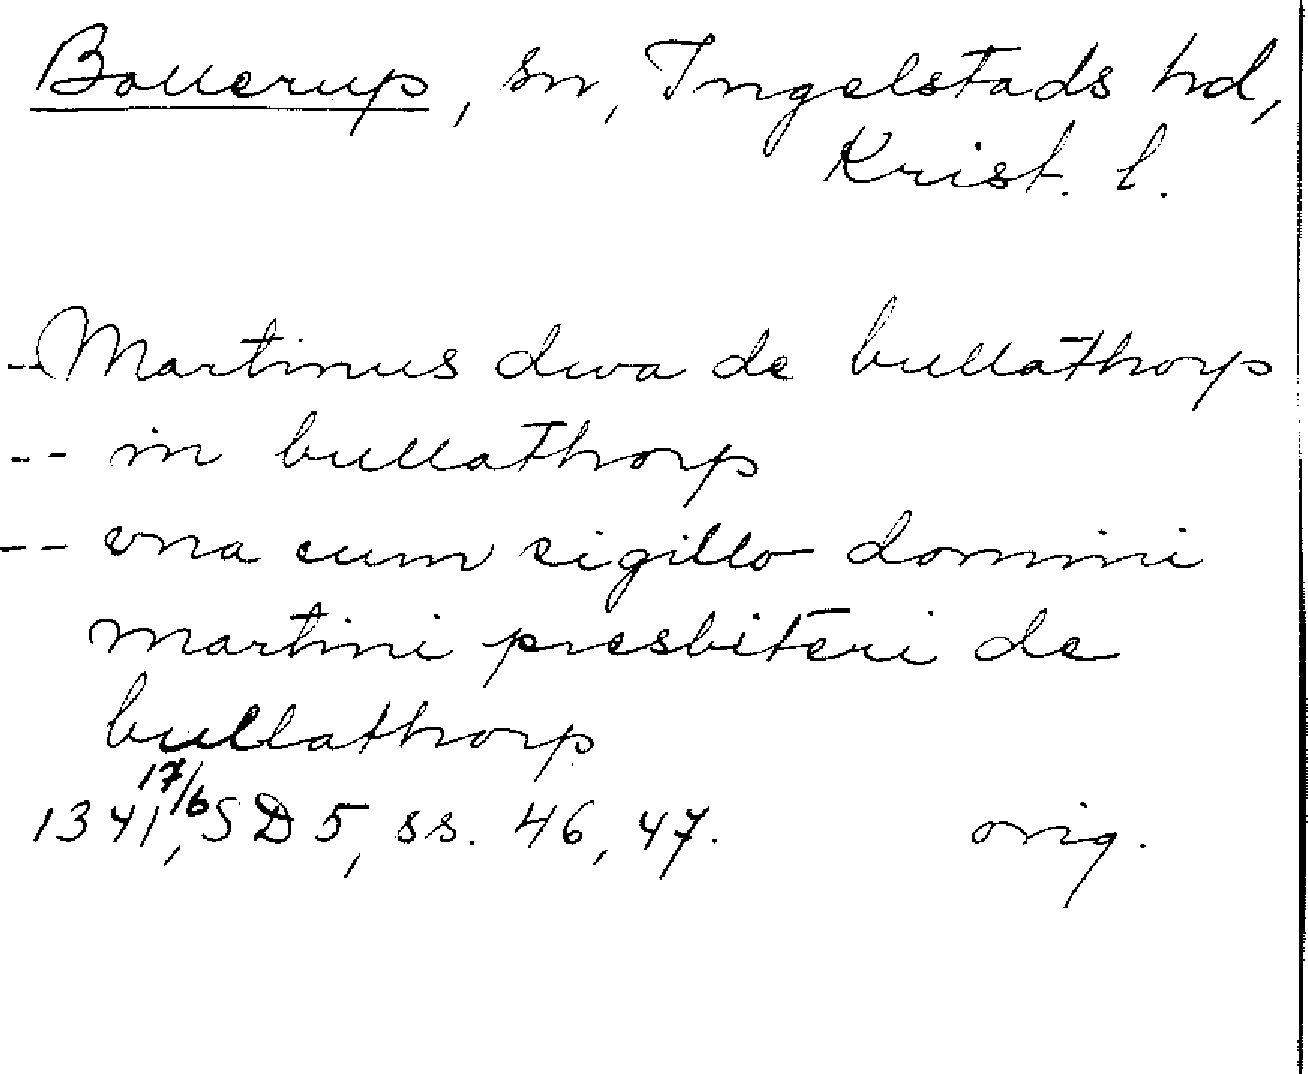 Bollerup, sn, Ingelstads hd,
Krist. l.
-- Martinus diva de bullathorp
-- in bullathorp
-- vna cum sigillo domini
martini presbiteri de
bullathorp
1341, 17/6 SD 5, ss. 46, 47. orig.